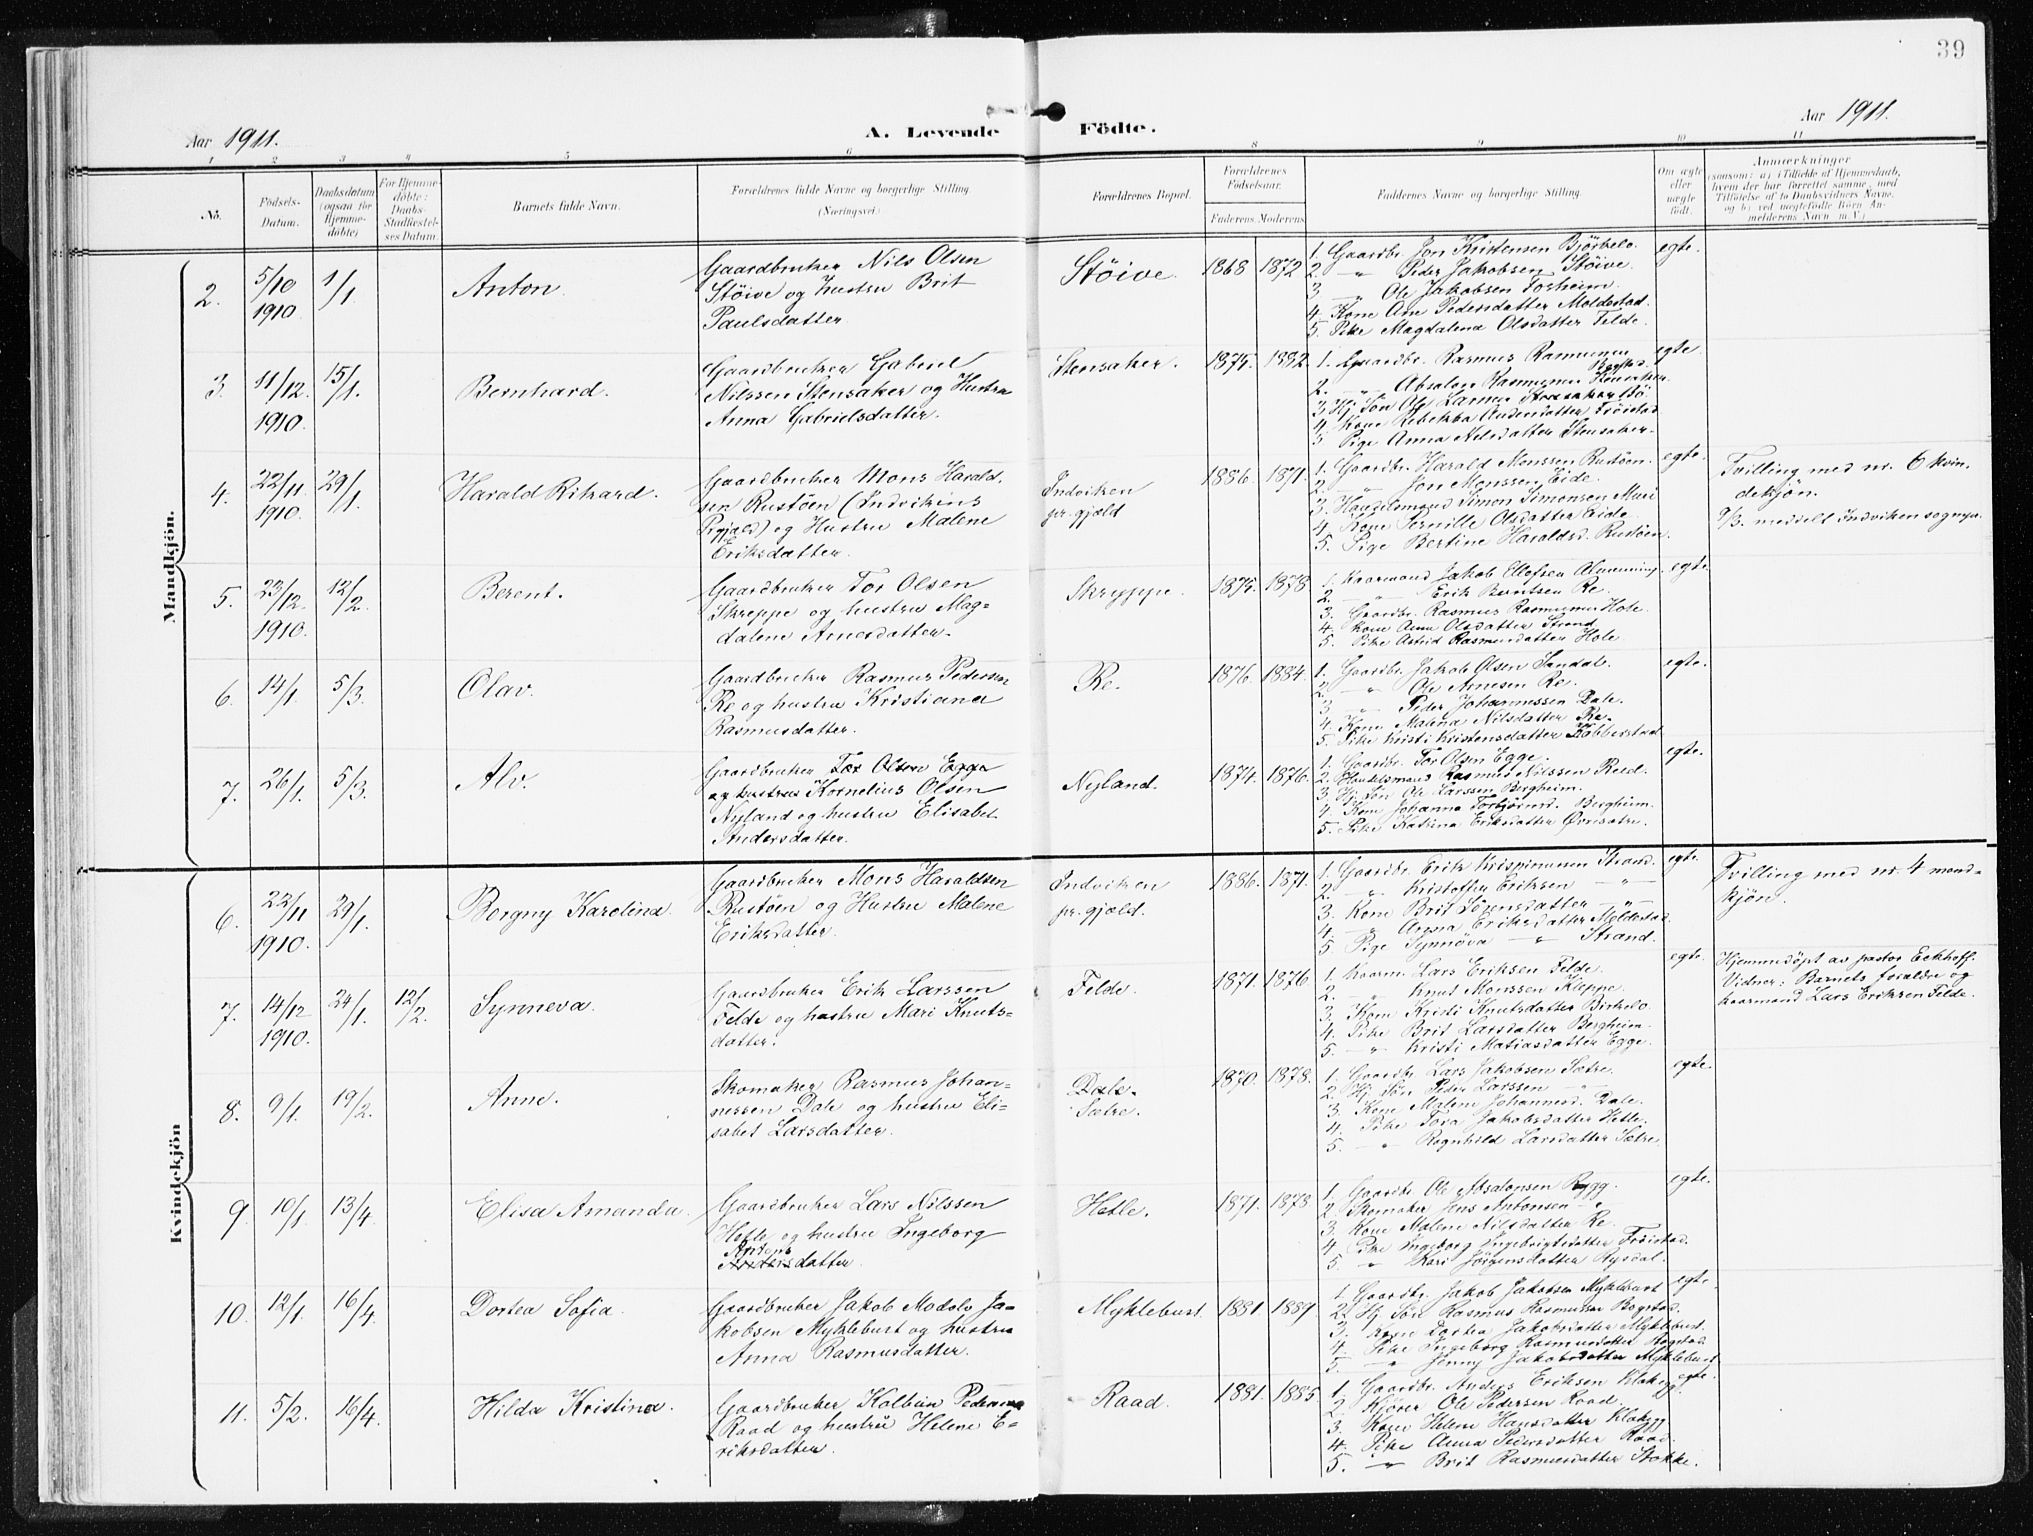 39
Aar 1911.
A. Levende Födte.
Aar 1911.
1 2 3 4 5 6 8 9 10 11
No.
Födsels-
Datum.
Daabsdatum
(ogsaa for
Hjemme-
döbte)
For Hjemme-
döbte:
Daabs-
Stadfæstel-
ses Datum.
Barnets fulde Navn.
Forældrenes fulde Navne og borgerlige Stilling.
(Næringsvei)
Forældrenes Bopæl.
Forældrenes
Födselsaar.
Faderens. Moderens.
Faddernes Navne og borgerlige Stilling.
Om ægte
eller
uægte
födt.
Anmærkninger
(saasom: a) i Tilfælde af Hjemmedaab,
hvem der har forrettet samme, med
Tilföielse af to Daabsvidners Navne,
og b) ved uægtefödte Börn An-
melderens Navn m. V.)
Mandkjön.
2. 5/10 1910 1/1 Anton.
Gaardbruker Nils Olsen
Störve og hustru Brit
Paulsdatter
Störve. 1868 1872
1. Gaardbr. Jon Kristensen Bjørhelo.
2. " Peder Jakobsen Støive.
3. " Ole Jakobsen Forheim.
4. Kone Ane Pedersdatter Moldestad.
5. Pike Magdalena Olsdatter Felde.
egte.
3. 11/12 1910. 15/1. Bernhard.
Gaardbruker Gabriel
Nilssen Stensaker og Hustru
Anna Gabrielsdatter.
Stensaker. 1875. 1882.
1. Gaardbr. Rasmus Rasmussen
2. " Absalon Rasmussen
3. Hj. Søn Ole Larsen
4. Kone Rebekka Andersdatter Frøistad
5. Pige Anna Nilsdatter Stensaker.
egte.
4. 22/11 1910. 29/1. Harald Rikard.
Gaardbruker Mons Harald-
sen Rustøen (Indvikens
Prgjæld) og Hustru Malene
Eriksdatter.
Indviken
pr. gjæld
1886. 1871.
1. Gaardbr. Harald Monssen Rustøen.
2. " Jon Monssen Eide.
3. Handelsmand Simon Simonsen Muri
4. Kone Pernille Olsdatter Eide.
5. Pige Bertine Haraldsd. Rustøen.
egte.
Tvilling med nr. 6 kvin-
dekjön.
9/3. meddelt Indviken sognepr.
5. 23/12. 1910. 12/2. Berent.
Gaardbruker Tor Olsen
Skreppe og hustru Mag-
dalene Arnesdatter.
Skreppe. 1875. 1878
1. Kaarmand Jakob Ellefsen Almenning.
2. " Erik Berntsen Re.
3. Gaardbr. Rasmus Rasmussen Hole.
4. Kone Anna Olsdatter Strand.
5. Pike Astrid Rasmusdatter Hole.
egte.
6. 14/1. 5/3. Olav.
Gaardbruker Rasmus Pedersen
Re og hustru Kristiana
Rasmusdatter.
Re. 1876. 1884.
1. Gaardbr. Jakob Olsen Sandal.
2. " Ole Arnesen Re.
3. " Peder Johannessen Dale.
4. Kone Malena Nilsdatter Re.
5. Pike Kristi Kristensdatter
egte.
7. 26/1. 5/3. Alv.
Gaardbruker Tor Olsen Egge
og hustru Kornelius Olsen
Nyland og hustru Elisabet
Andersdatter.
Nyland. 1874. 1876.
1. Gaardbr. Tor Olsen Egge.
2. Handelsmand Rasmus Nilssen Reed.
3. Hj. Søn Ole Larssen Bergheim.
4. Kone Johanne Torbjørnsd. Bergheim.
5. Pike Katrina Eriksdatter Øvresætre.
egte.
Kvindekjön
6. 22/11 1910. 29/1. Borgny Karolina.
Gaardbruker Mons Haraldsen
Rustøen og Hustru Malene
Eriksdatter.
Indviken
pr. gjæld.
1886. 1871.
1. Gaardbr. Erik Krispinussen Strand.
2. " Kristoffer Eriksen " "
3. Kone Brit Sørensdatter " "
4. " Anna Eriksdatter Moldestad.
5. Pige Synnøva " Strand.
egte.
Tvilling med nr. 4 mand-
kjön.
7. 14/12 1910. 24/1. 12/2. Synneva.
Gaardbruker Erik Larssen
Felde og hustru Mari Knuts-
datter.
Felde. 1871. 1876.
1. Kaarm. Lars Eriksen Felde.
2. " Knut Monssen Kleppe.
3. Kone Kristi Knutsdatter Birkelo.
4. Pike Brit Larsdatter Bergheim.
5. " Kristi Matiasdatter Egge.
egte.
Hjemmedøpt av pastor Eckhoff.
Vidner: Barnets forældre og
kaarmand Lars Eriksen Felde.
8. 9/1. 19/2. Anne.
Skomaker Rasmus Johan-
nessen Dale og hustru Eli-
sabet Larsdatter.
Dale.
Sætre.
1870. 1878.
1. Gaardbr. Lars Jakobsen Sætre.
2. Hj. Søn Peder Larssen "
3. Kone Malene Johannesd. Dale.
4. Pike Tora Jakobsdatter Hetle.
5. " Ragnhild Larsdatter Sætre.
egte.
9. 10/1. 13/4. Elisa Amanda.
Gaardbruker Lars Nilssen
Hetle og hustru Ingeborg
Antons
Andersdatter.
Hetle. 1871. 1878.
1. Gaardbr. Ole Absalonsen Rygg.
2. Skomaker Jens Antonsen "
3. Kone Malene Nilsdatter Re.
4. Pike Ingeborg Ingebrigtsdatter Frøistad.
5. " Kari Jørgensdatter Rysdal.
egte.
10. 12/1. 16/4. Dortea Sofia.
Gaardbruker Jakob Modolv Ja-
kobsen Myklebust og hustru
Anna Rasmusdatter.
Myklebust. 1881. 1889.
1. Gaardbr. Jakob Jakobsen Myklebust
2. Hj. Søn Rasmus Rasmussen Bogstad.
3. Kone Dortea Jakobsdatter Myklebust.
4. Pike Ingeborg Rasmusdatter Bogstad
5. " Jenny Jakobsdatter Myklebust
egte.
11. 5/2. 16/4. Hilda Kristina.
Gaardbruker Kolbein Pedersen
Raad og hustru Helene E-
riksdatter.
Raad. 1881. 1885
1. Gaardbr. Anders Eriksen Klakegg.
2. Kjører Ole Pedersen Raad.
3. Kone Helene Hansdatter Klakegg
4. Pike Anna Pedersdatter Raad.
5. " Brit Rasmusdatter Stokke.
egte.